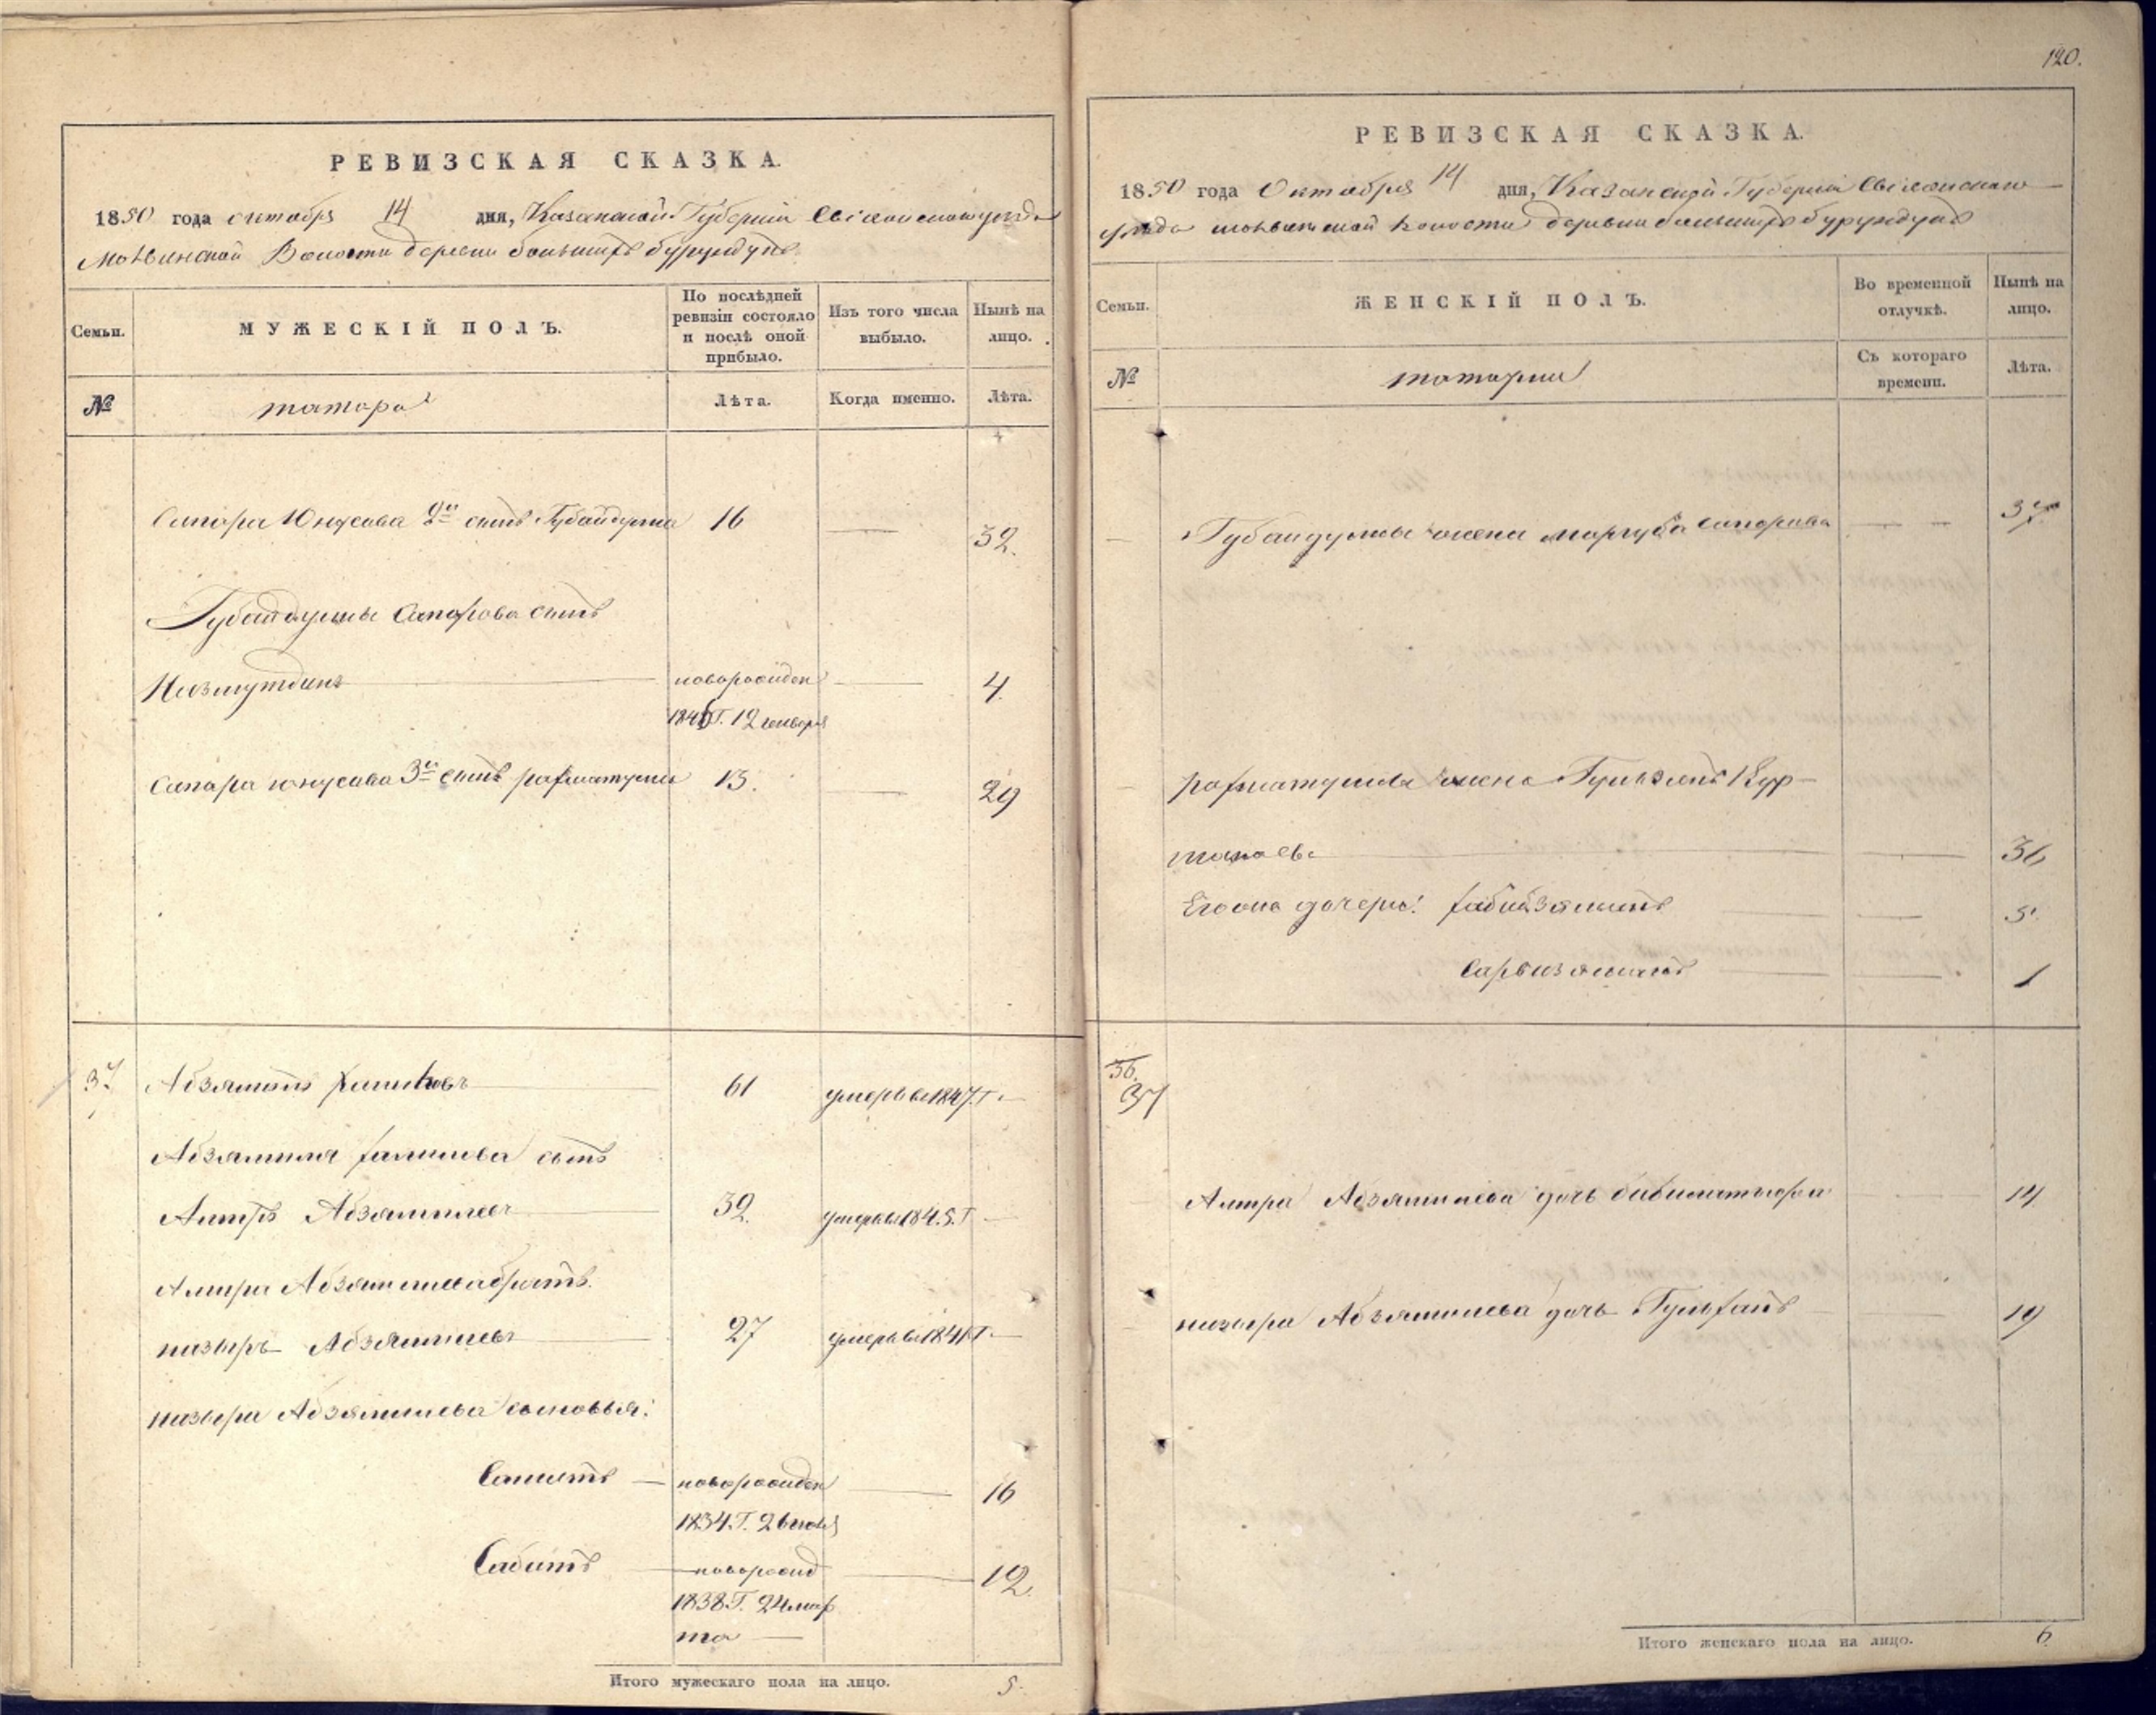 РЕВИЗСКАЯ СКАЗКА.
1850 года октября 14 дня, Казанской Губернiи Свiяжскаго уезда
Молвинской Волости деревни большихъ бурундукъ
Семьи.
МУЖЕСКIЙ ПОЛЪ.
По послѣдней ревизiи состояло и послѣ оной прибыло.
Изъ того числа выбыло.
Нынѣ на лицо.
№
татара
Лѣта.
Когда именно.
Лѣта.
Сапара Юнусова 2й сынъ Губайдулла 16 32.
Губайдуллы Сапарова сынъ
Низмутдинъ новорожден 4.
1846 Г. 12 генваря
Сапара юнусова 3й сынъ рахматулла 13. 29
37 Абзялилъ халиловъ 61 умеръ въ 1847 Г.
Абзялиля халилова сынъ
Амиръ Абзялиловъ 32. умеръ въ 184.5. Г
Амира Абзялилова братъ.
назыръ Абзялиловъ 27 умеръ въ 1841 Г.
назыра Абзялилова сыновья:
новорожден 16
1834. Г. 26
Сабитъ новорожд 12.
1838. Г. 24 мар
та
Итого мужескаго пола на лицо. 5.
120.
РЕВИЗСКАЯ СКАЗКА.
1850 года Октября 14 дня, Казанской Губернiи Свiяжскаго
уезда молвинской волости деревни большихъ бурундукъ
Семьи.
ЖЕНСКIЙ ПОЛЪ.
Во временной отлучкѣ.
Нынѣ на лицо.
№
татарки
Съ котораго времени.
Лѣта.
Губайдуллы жена маргуба сапарова 37
рахматуллы жена
36
Его же дочери: 5.
1
36.
37
Амира Абзялилова дочь 14
назыра Абзялилова дочь Гульханъ 19
Итого женскаго пола на лицо. 6